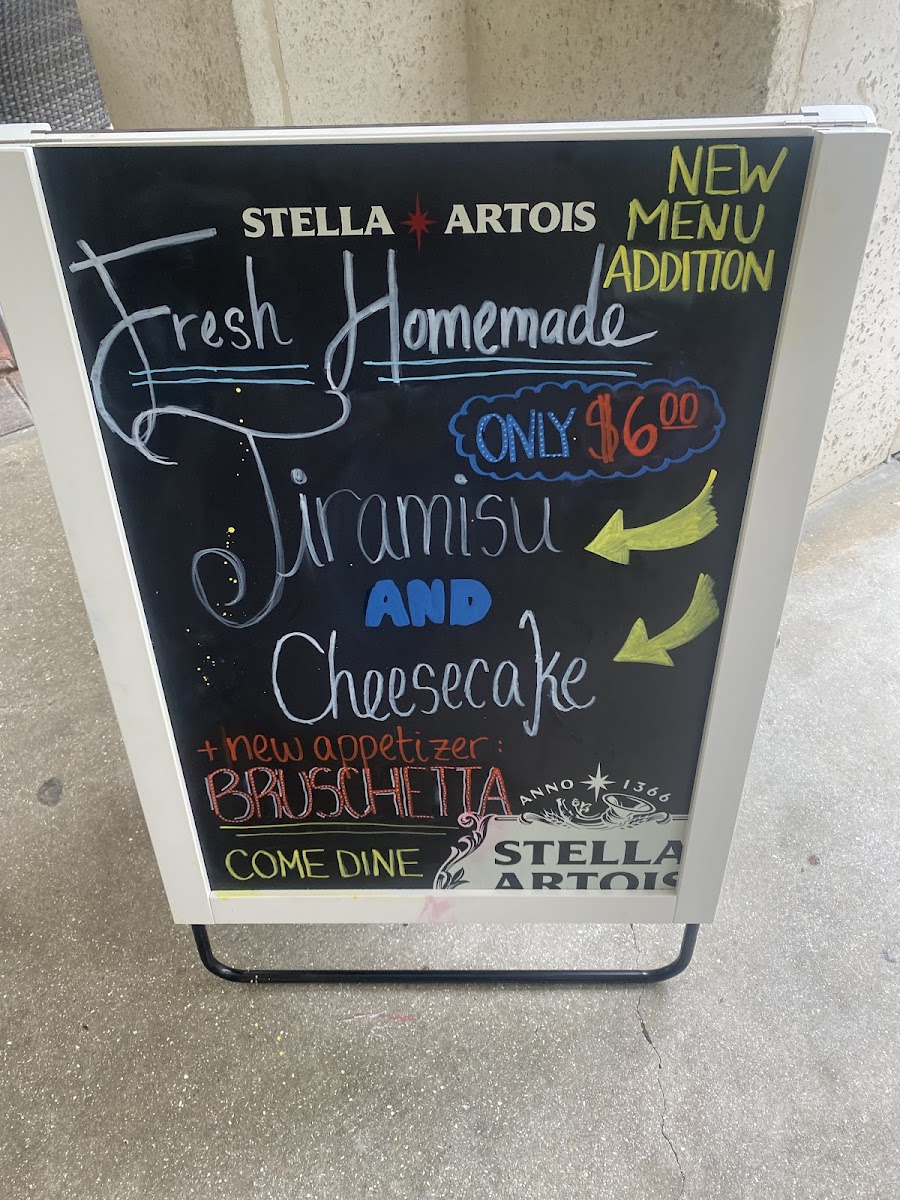 STELLA ARTOIS
NEW
MENU
ADDITION
Fresh Homemade
ONLY $6.00
Tiramisu
AND
Cheesecake
+ new appetizer:
BRUSCHETTA
COME DINE
ANNO 1366
STELLA
ARTOIS